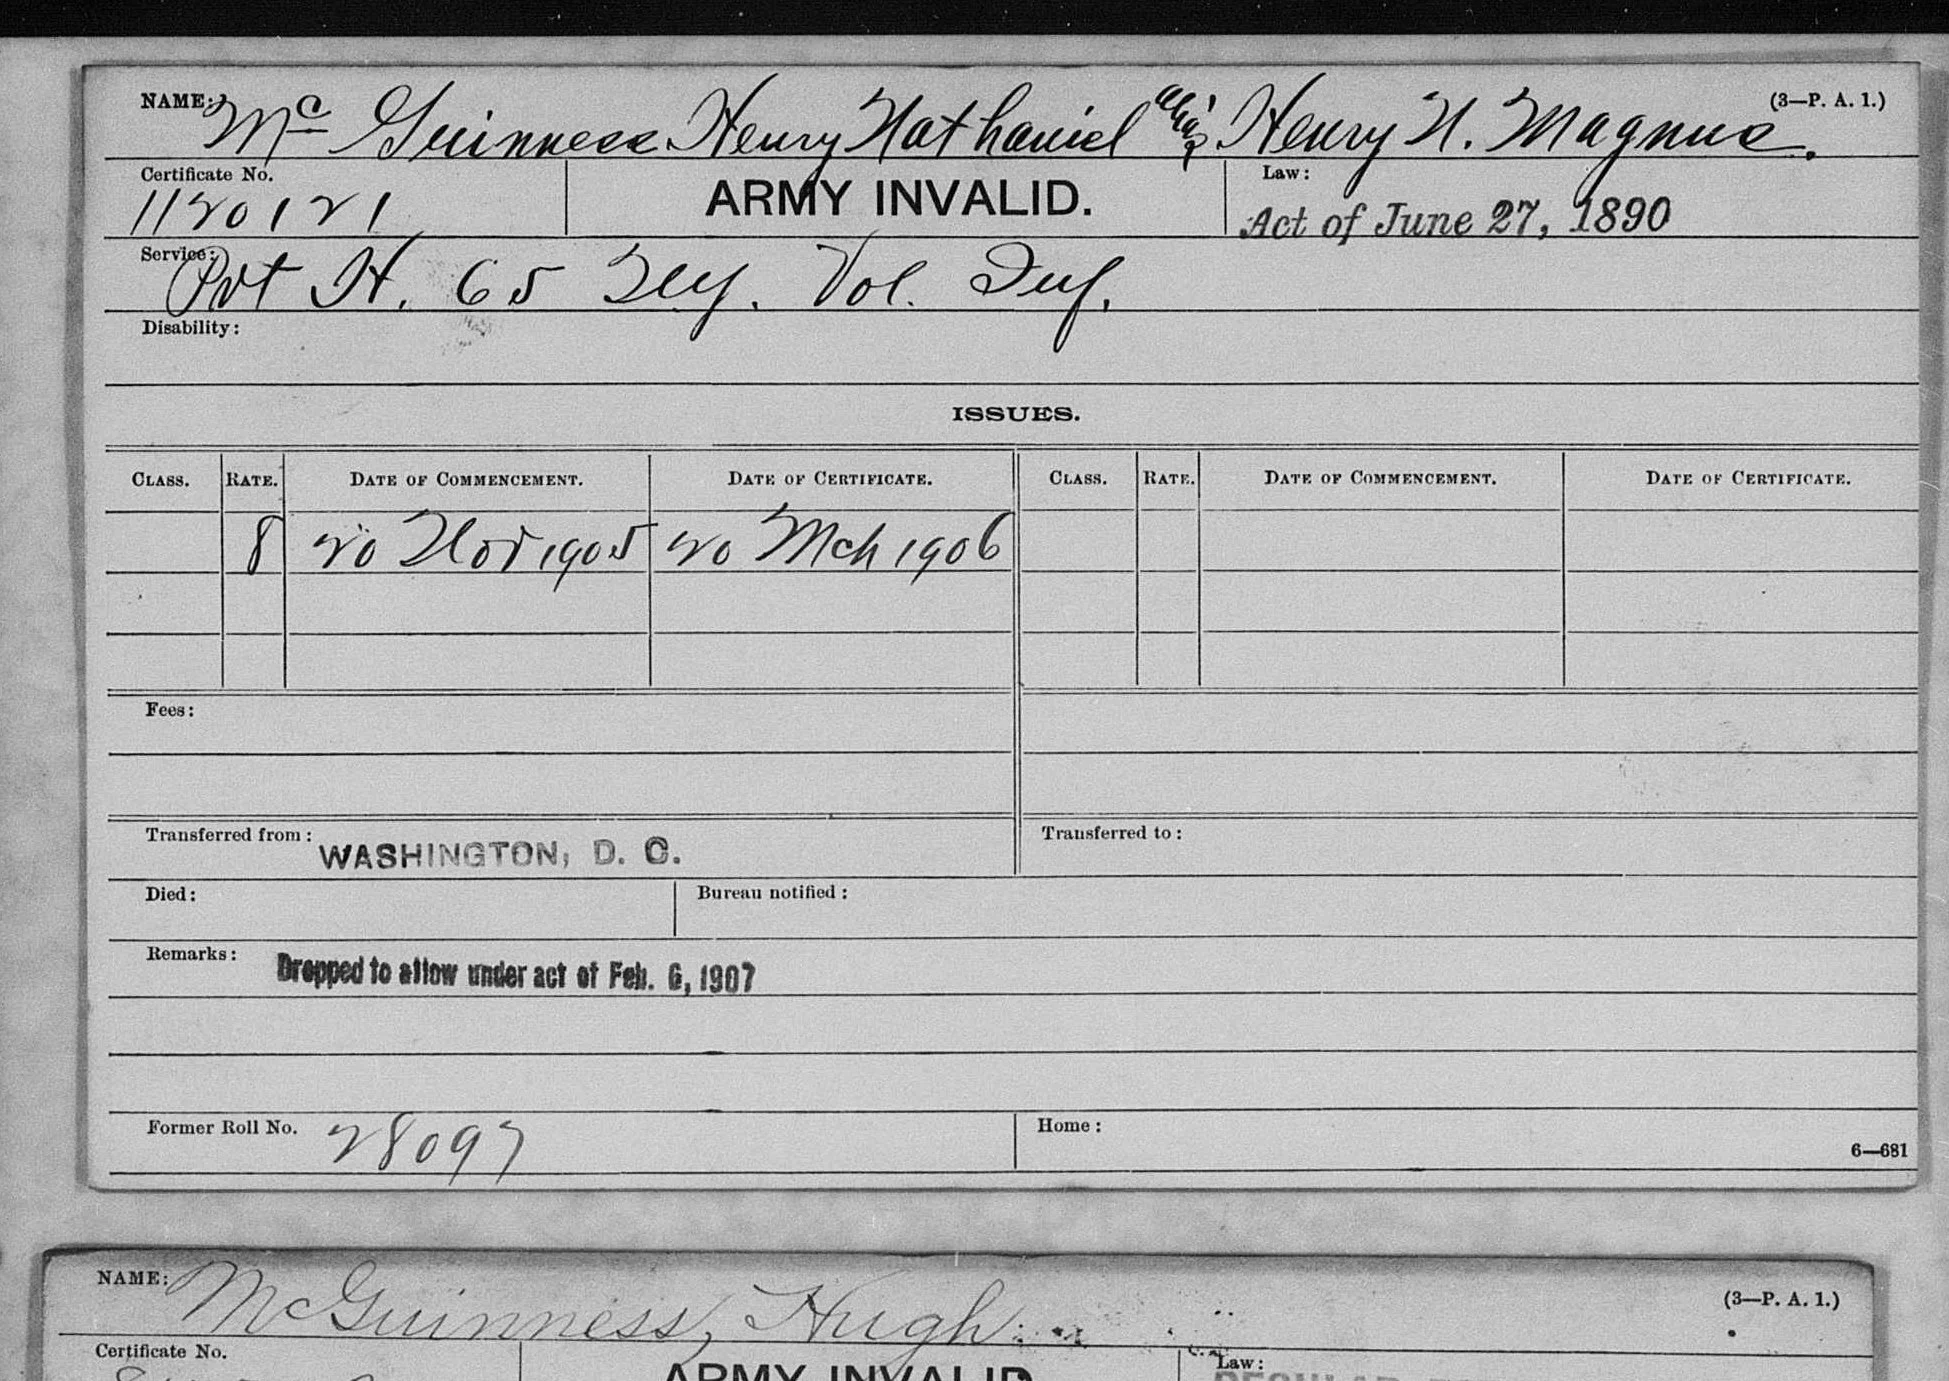 NAME: McGuinness Henry Nathaniel alias Henry N. Magnus. (3—P. A. 1.)
Certificate No. 1120121 ARMY INVALID. Law: Act of June 27, 1890
Service: Pvt H. 65 Ill. Vol. Inf.
Disability:
ISSUES.
CLASS. RATE. DATE OF COMMENCEMENT. DATE OF CERTIFICATE. CLASS. RATE. DATE OF COMMENCEMENT. DATE OF CERTIFICATE.
8 20 Nov 1905 20 Mch 1906
Fees:
Transferred from: WASHINGTON, D. C. Transferred to:
Died: Bureau notified:
Remarks: Dropped to allow under act of Feb. 6, 1907
Former Roll No. 28097 Home:
6—681
NAME: McGuinness, Hugh (3—P. A. 1.)
Certificate No. ARMY INVALID Law: